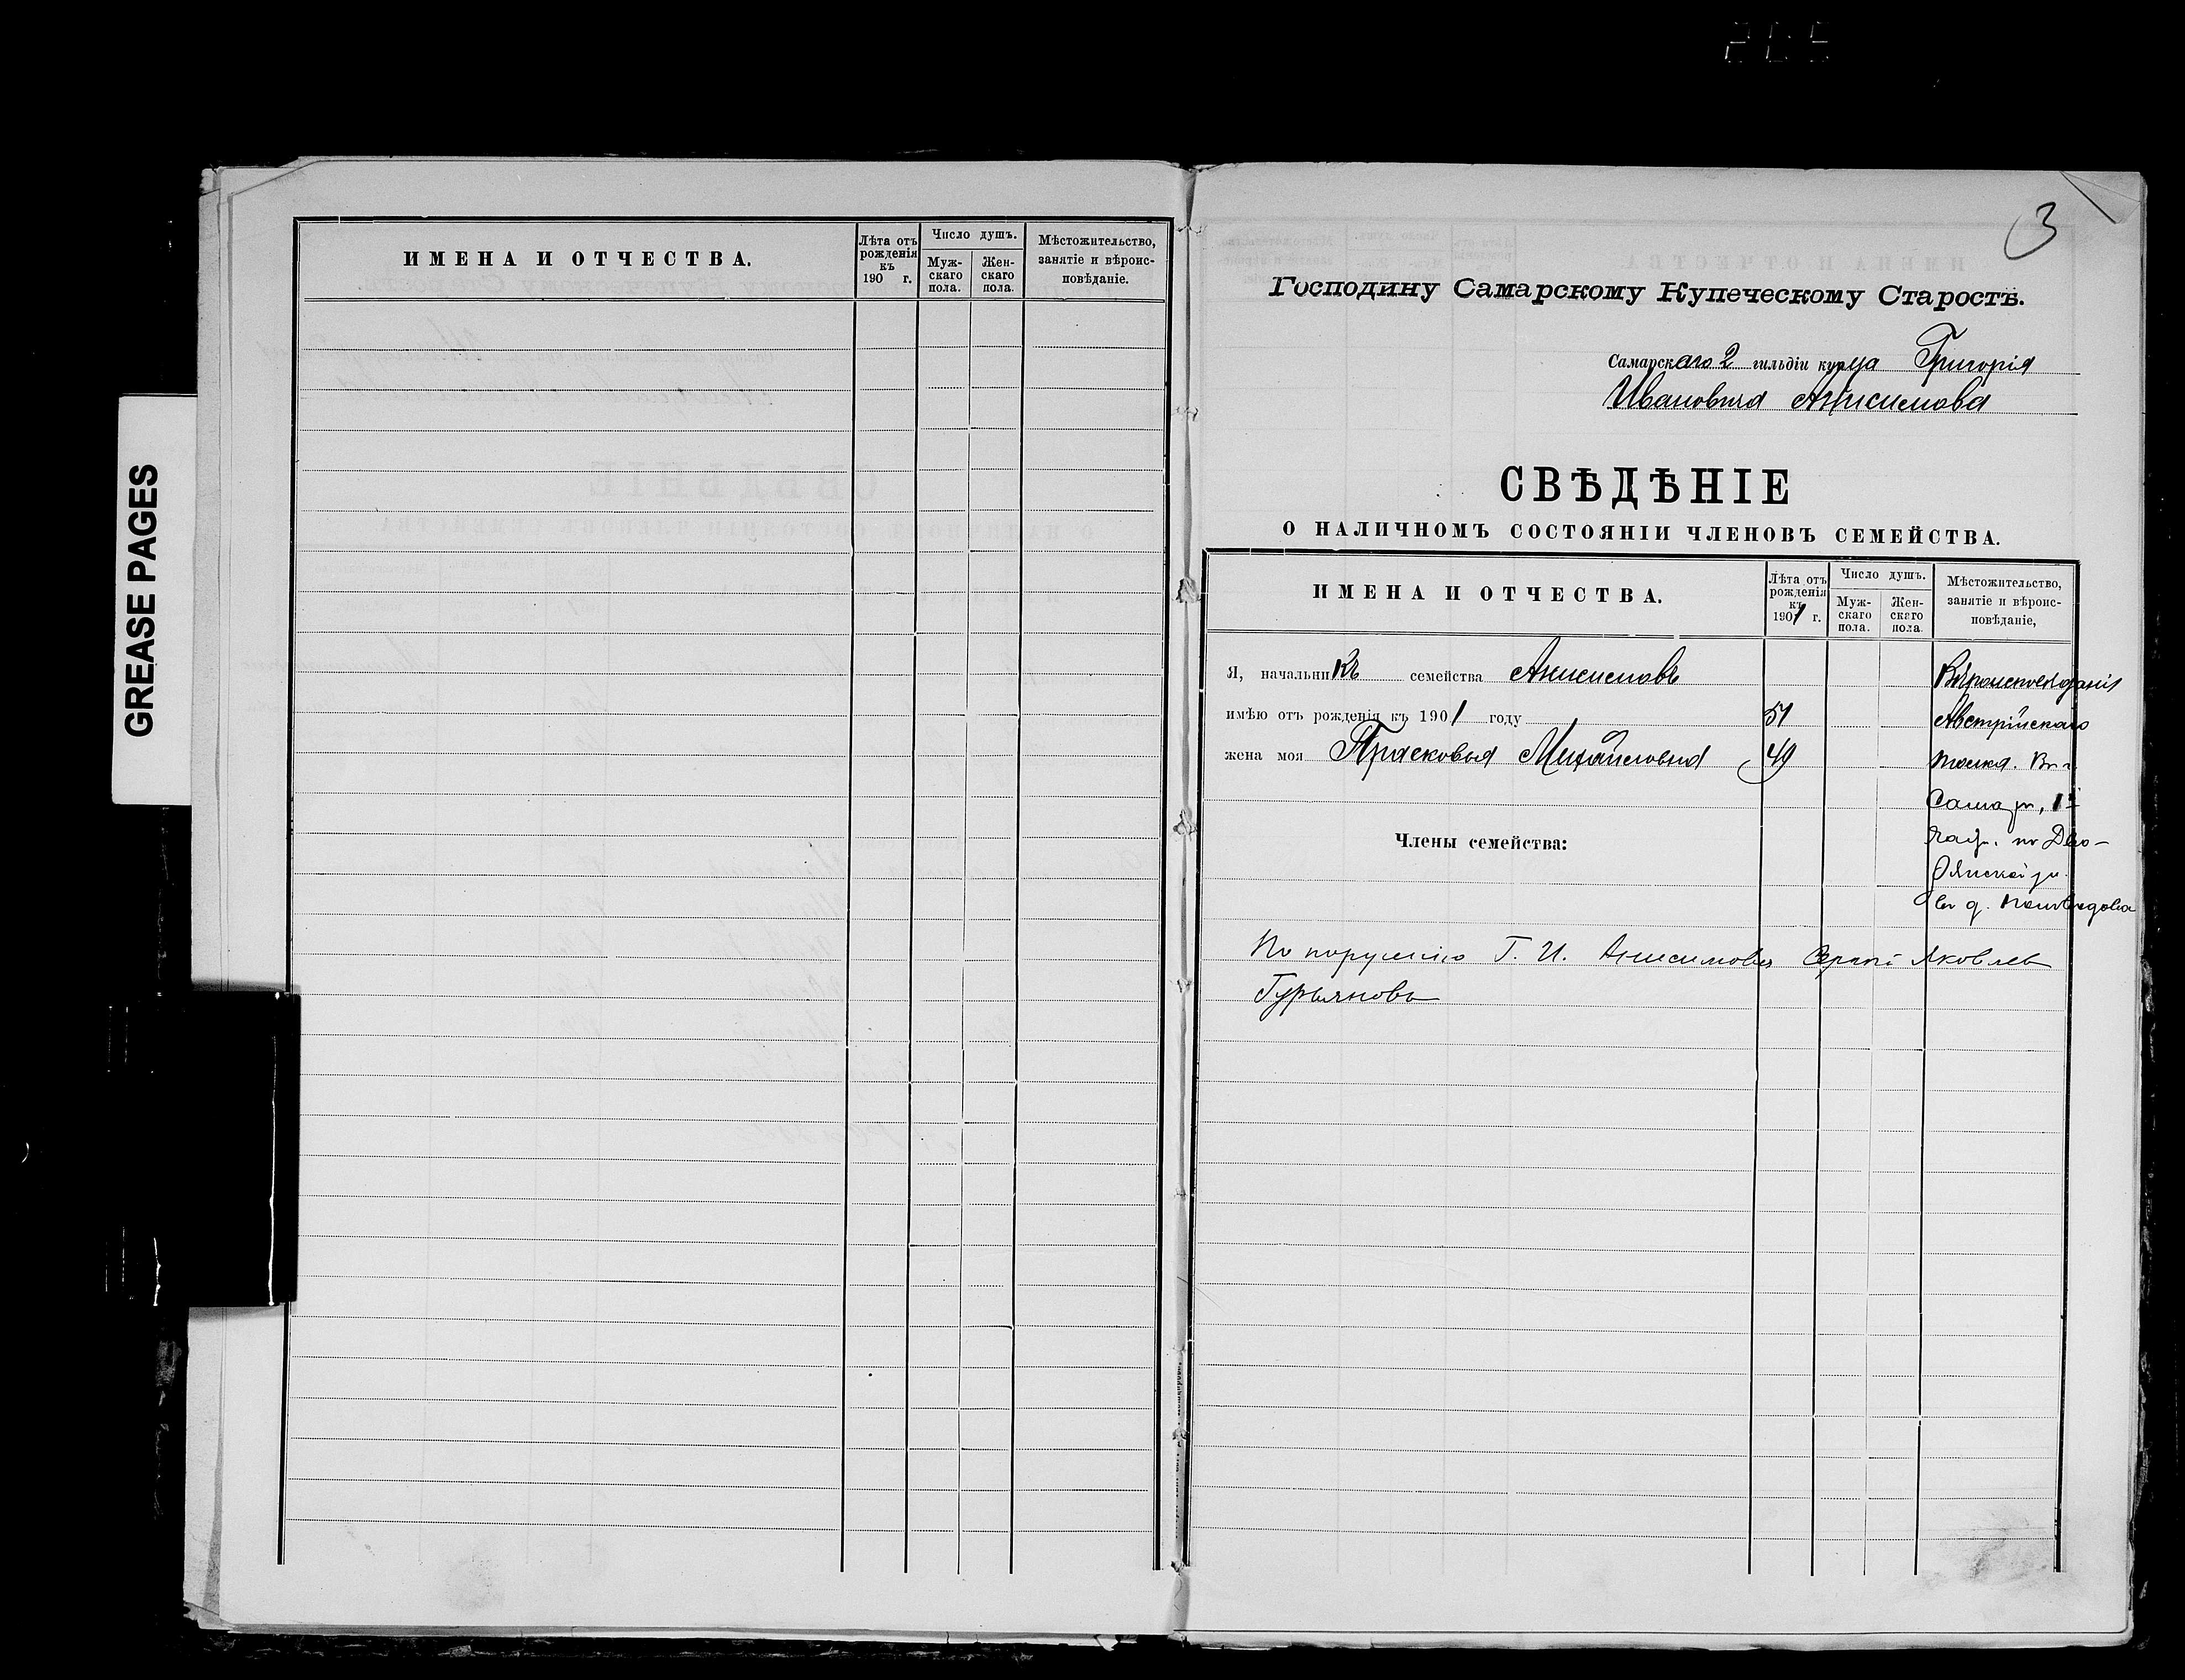 205
GREASE PAGES
ИМЕНА И ОТЧЕСТВА.
Лѣта отъ рожденія къ 190 г.
Число душъ.
Муж-скаго пола.
Жен-скаго пола.
Мѣстожительство, занятіе и вѣроис-повѣданіе.
3
Господину Самарскому Купеческому Старостѣ.
Самарскаго 2 гильдіи купца Григорія
Ивановича Анисимова
СВѢДѢНІЕ
О НАЛИЧНОМЪ СОСТОЯНІИ ЧЛЕНОВЪ СЕМЕЙСТВА.
ИМЕНА И ОТЧЕСТВА.
Лѣта отъ рожденія къ 1901 г.
Число душъ.
Муж-скаго пола.
Жен-скаго пола.
Мѣстожительство, занятіе и вѣроис-повѣданіе,
Я, начальникъ семейства Анисимовъ
Вѣроисповѣданія
имѣю отъ рожденія къ 1901 году 51
Австрійскаго
жена моя Прасковья Михайловна 49
толка. Въ г.
Самары, 1й
Члены семейства:
части. по Дво-
рянской ул.
въ д.
По порученію Г. И. Анисимова Сергѣй Яковлев
Гурьяновъ